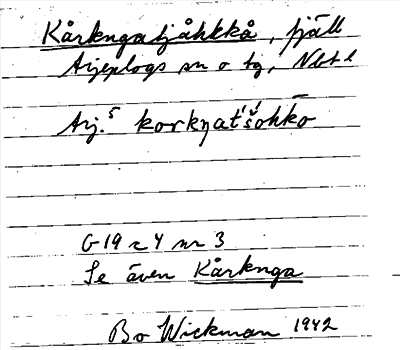 Kårkngatjåhkkå, fjäll
Arjeplogs sn o tg, Nbt l
Arj.⁵ korkŋat́š́ohkō
G 19 z 4 nr 3
Se även Kårknga
Bo Wickman 1942